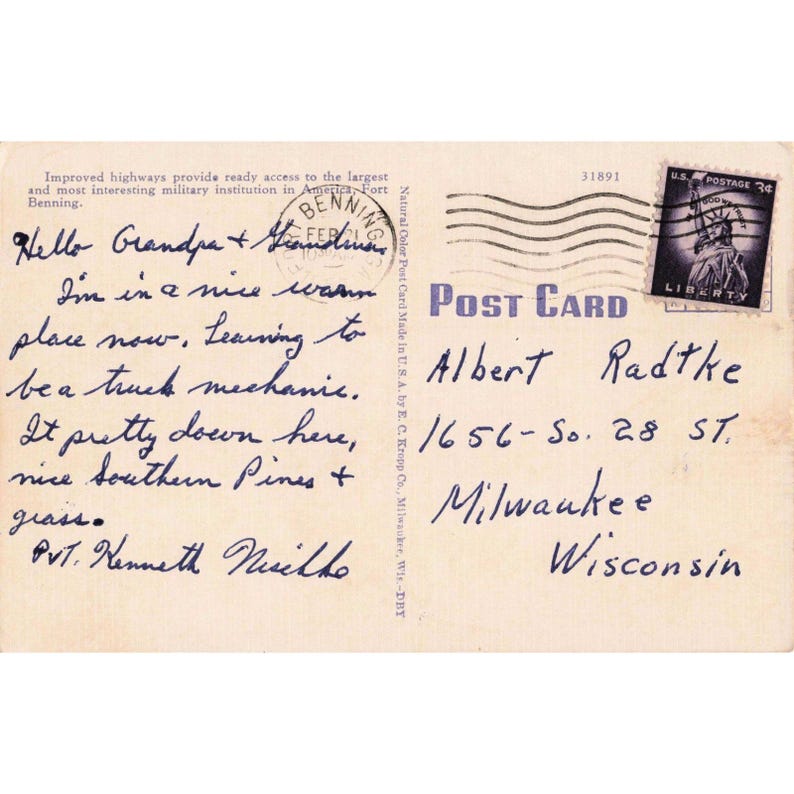 Improved highways provide ready access to the largest
and most interesting military institution in America, Fort
Benning.
Hello Grandpa & Grandma
I'm in a nice warm
place now. Learning to
be a truck mechanic.
It pretty down here,
nice Southern Pines &
grass.
Pvt. Kenneth
Natural Color Post Card Made in U.S.A. by E. C. Kropp Co., Milwaukee, Wis.-DBY
FORT BENNING, GA.
FEB 21
1030 AM
31891
U.S. POSTAGE 3¢
IN GOD WE TRUST
LIBERTY
POST CARD
Albert Radtke
1656-So. 28 ST.
Milwaukee
Wisconsin